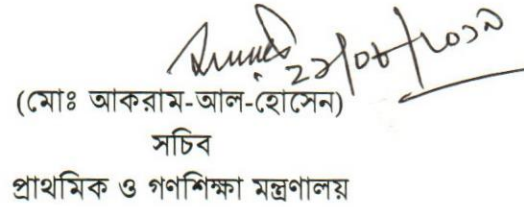 ২২/০৮/২০১৯
(মোঃ আকরাম-আল-হোসেন)
সচিব
প্রাথমিক ও গণশিক্ষা মন্ত্রণালয়